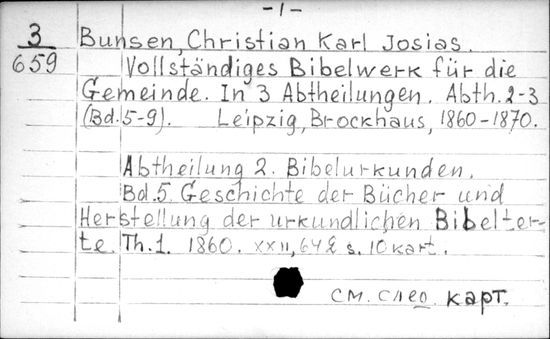 -1-
3
659
Bunsen, Christian Karl Josias.
Vollständiges Bibelwerk für die
Gemeinde. In 3 Abtheilungen. Abth. 2-3
(Bd. 5-9). Leipzig, Brockhaus, 1860-1870.
Abtheilung 2. Bibelurkunden.
Bd. 5. Geschichte der Bücher und
Herstellung der urkundlichen Bibelter-
te. Th. 1. 1860. XXII, s. 10 kart.
см. след. карт.